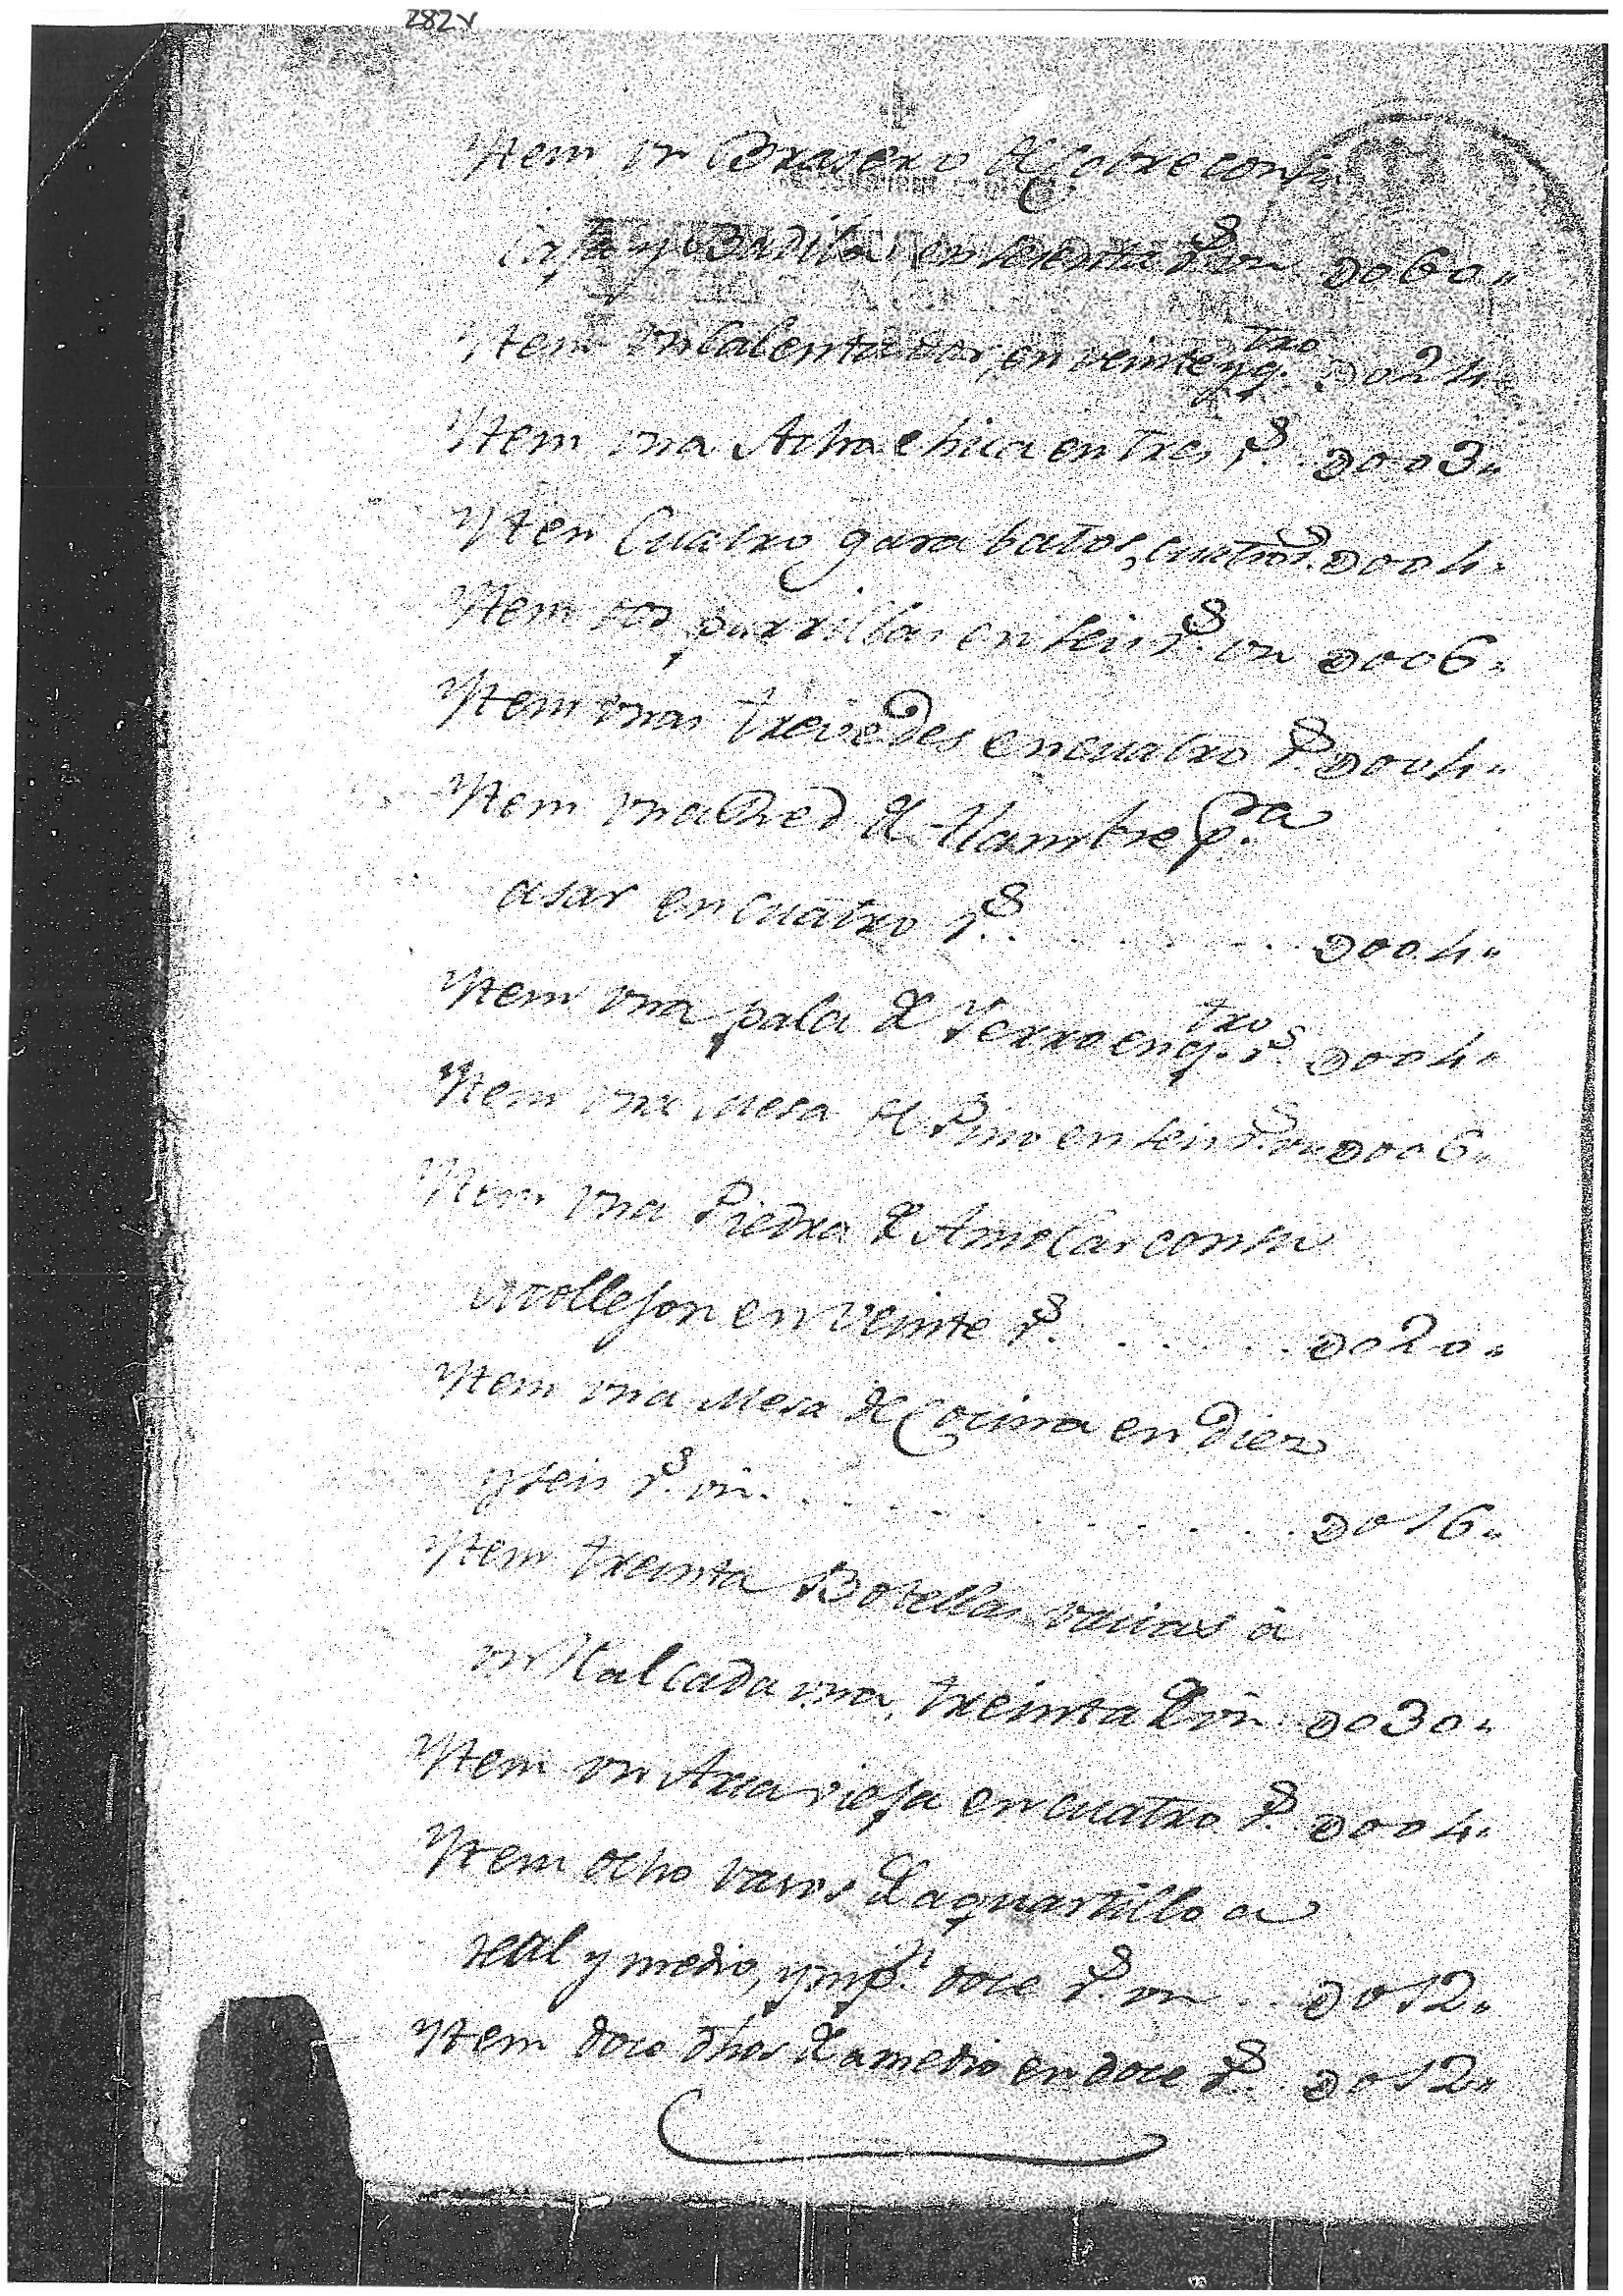 282v
Ytem vn Brasero de Cobre con su
caja y Badila en sesenta r.s vn D060„
Ytem vn Calentador, en veinte y q.tro D024„
Ytem vna Acha chica en tres r.s D003„
Ytem Cuatro garabatos, cuatro r.s D004„
Ytem dos parrillas en seis r.s vn D006„
Ytem vnas treivedes en cuatro r.s D004„
Ytem vna Red de Alambre p.a
asar en cuatro r.s . . . . . . D004„
Ytem vna pala de Yerro en q.tro r.s D004„
Ytem vna Mesa de Pino en seis r.s vn D006„
Ytem vna Piedra de Amolar con su
mollejon en veinte r.s . . . . . D020„
Ytem vna Mesa de Cocina en diez
y seis r.s vn. . . . . . . . . . D016„
Ytem treinta Botellas vacias à
vn Real cada vna, treinta R vn D030„
Ytem vn Arca vieja en cuatro r.s D004„
Ytem ocho vasos de a quartillo a
real y medio, ymp.n doce r.s vn . . D012„
Ytem doce dhos de a medio en doce r.s D012„